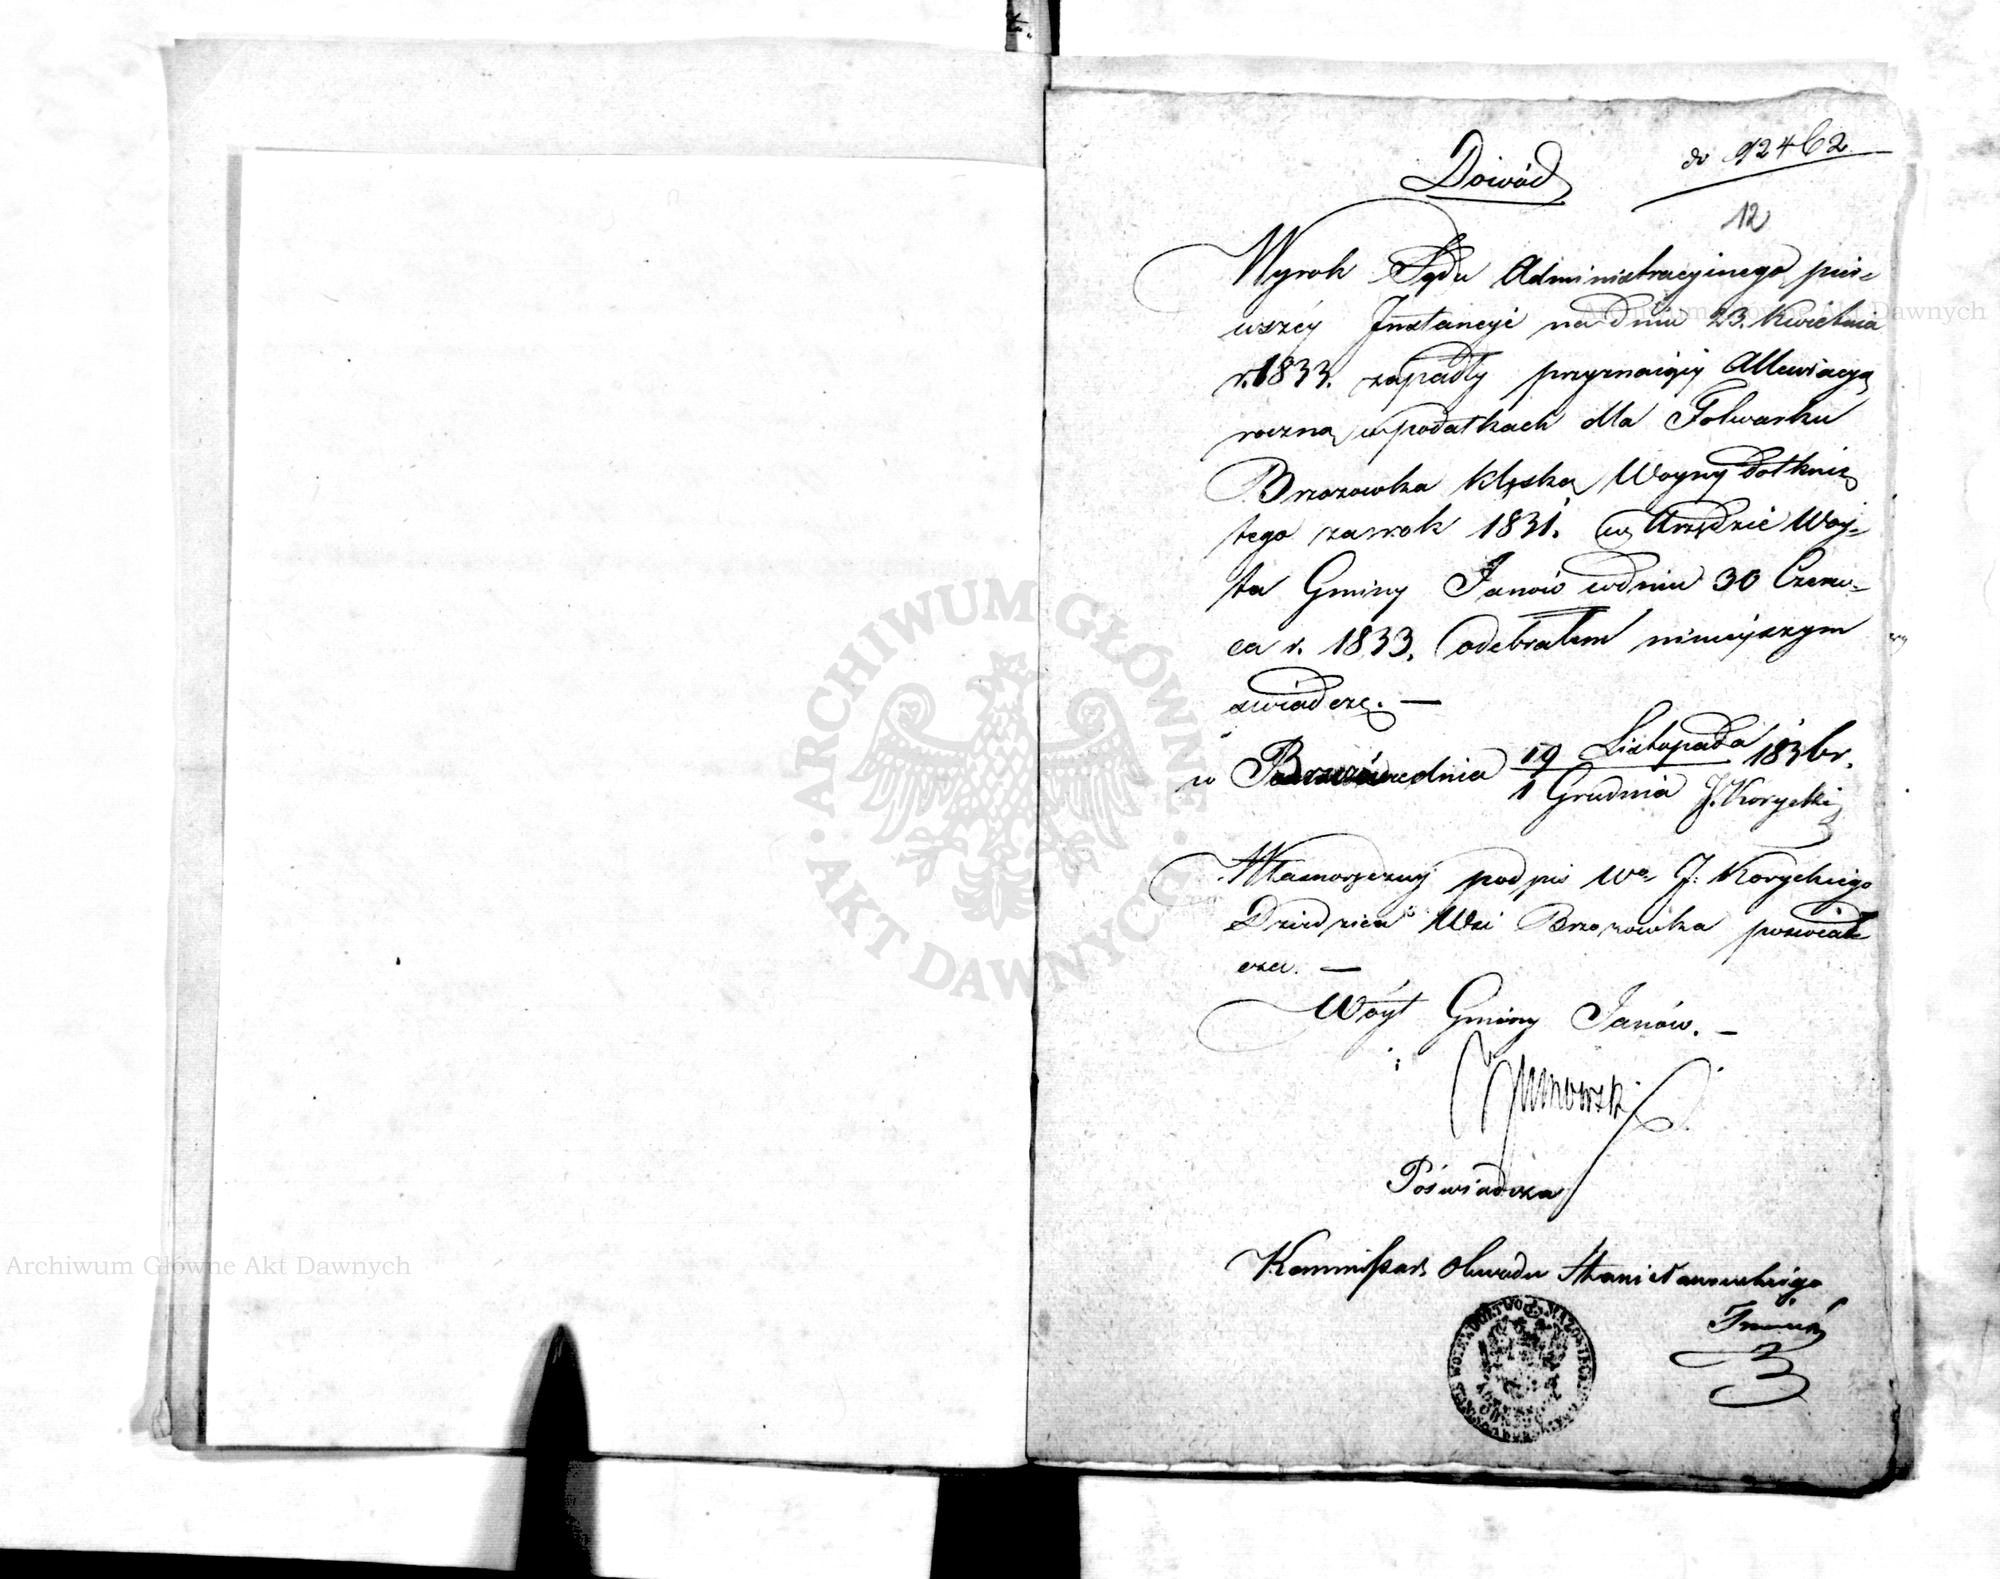 do 12462
Dowód
12
Wyrok Sądu Administracyinego pier=
wszey Instancyi na dniu 23. Kwietnia
r. 1833. zapadły przyznaiący Allewiacyą
roczną w podatkach dla Folwarku
Brzozowka klęską Woyny dotknię
tego za rok 1831. w Urzędzie Woy=
ta Gminy Janów w dniu 30 Czerw=
ca r. 1833. odebrałem ninieyszym
świadczę. —
w dnia 19 Listopada 1836 r.
1 Grudnia J. Korycki
Własnoręczny podpis Wo J. Koryckiego
Dziedzica Wsi Brzozowka poświad
cza. —
Wóyt Gminy Janów. —
Poświadcza
Kommissarz Obwodu Stanisławowskiego
ARCHIWUM GŁÓWNE AKT DAWNYCH
Archiwum Główne Akt Dawnych
Archiwum Główne Akt Dawnych